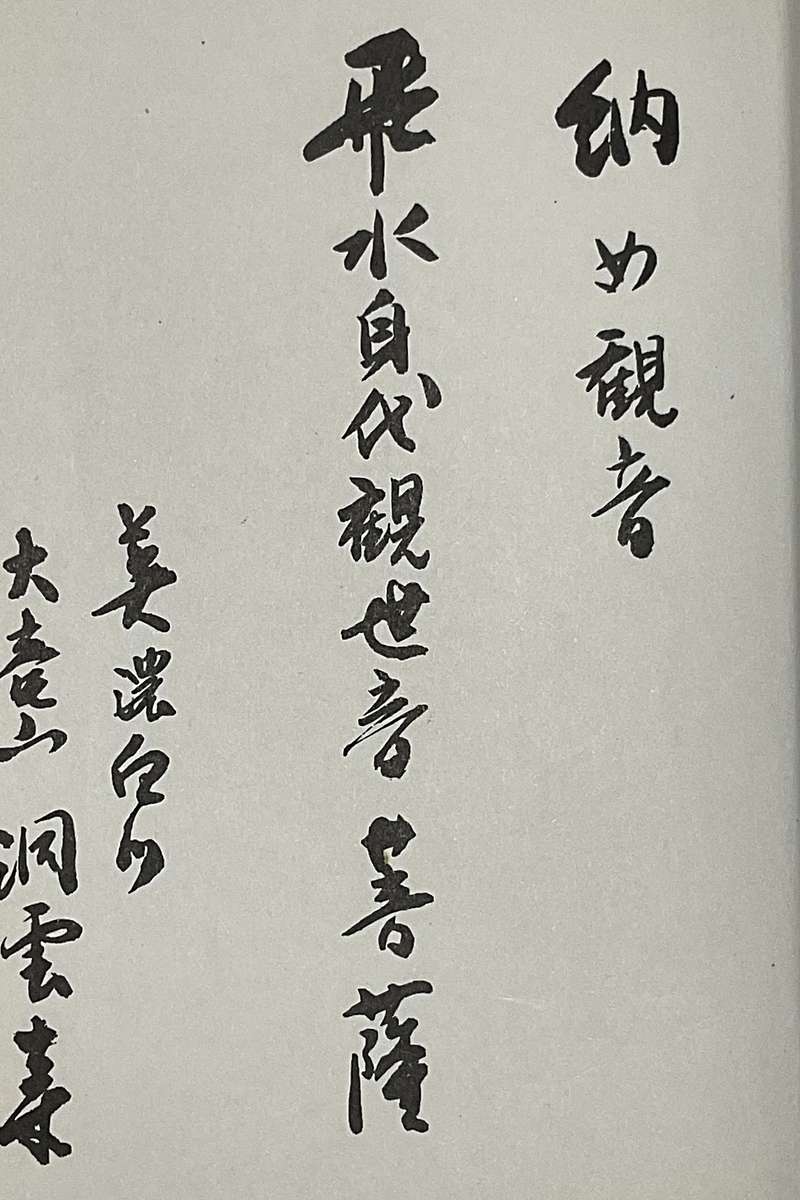 納め観音
飛水身代観世音菩薩
美濃白川
大喜山 洞雲泰